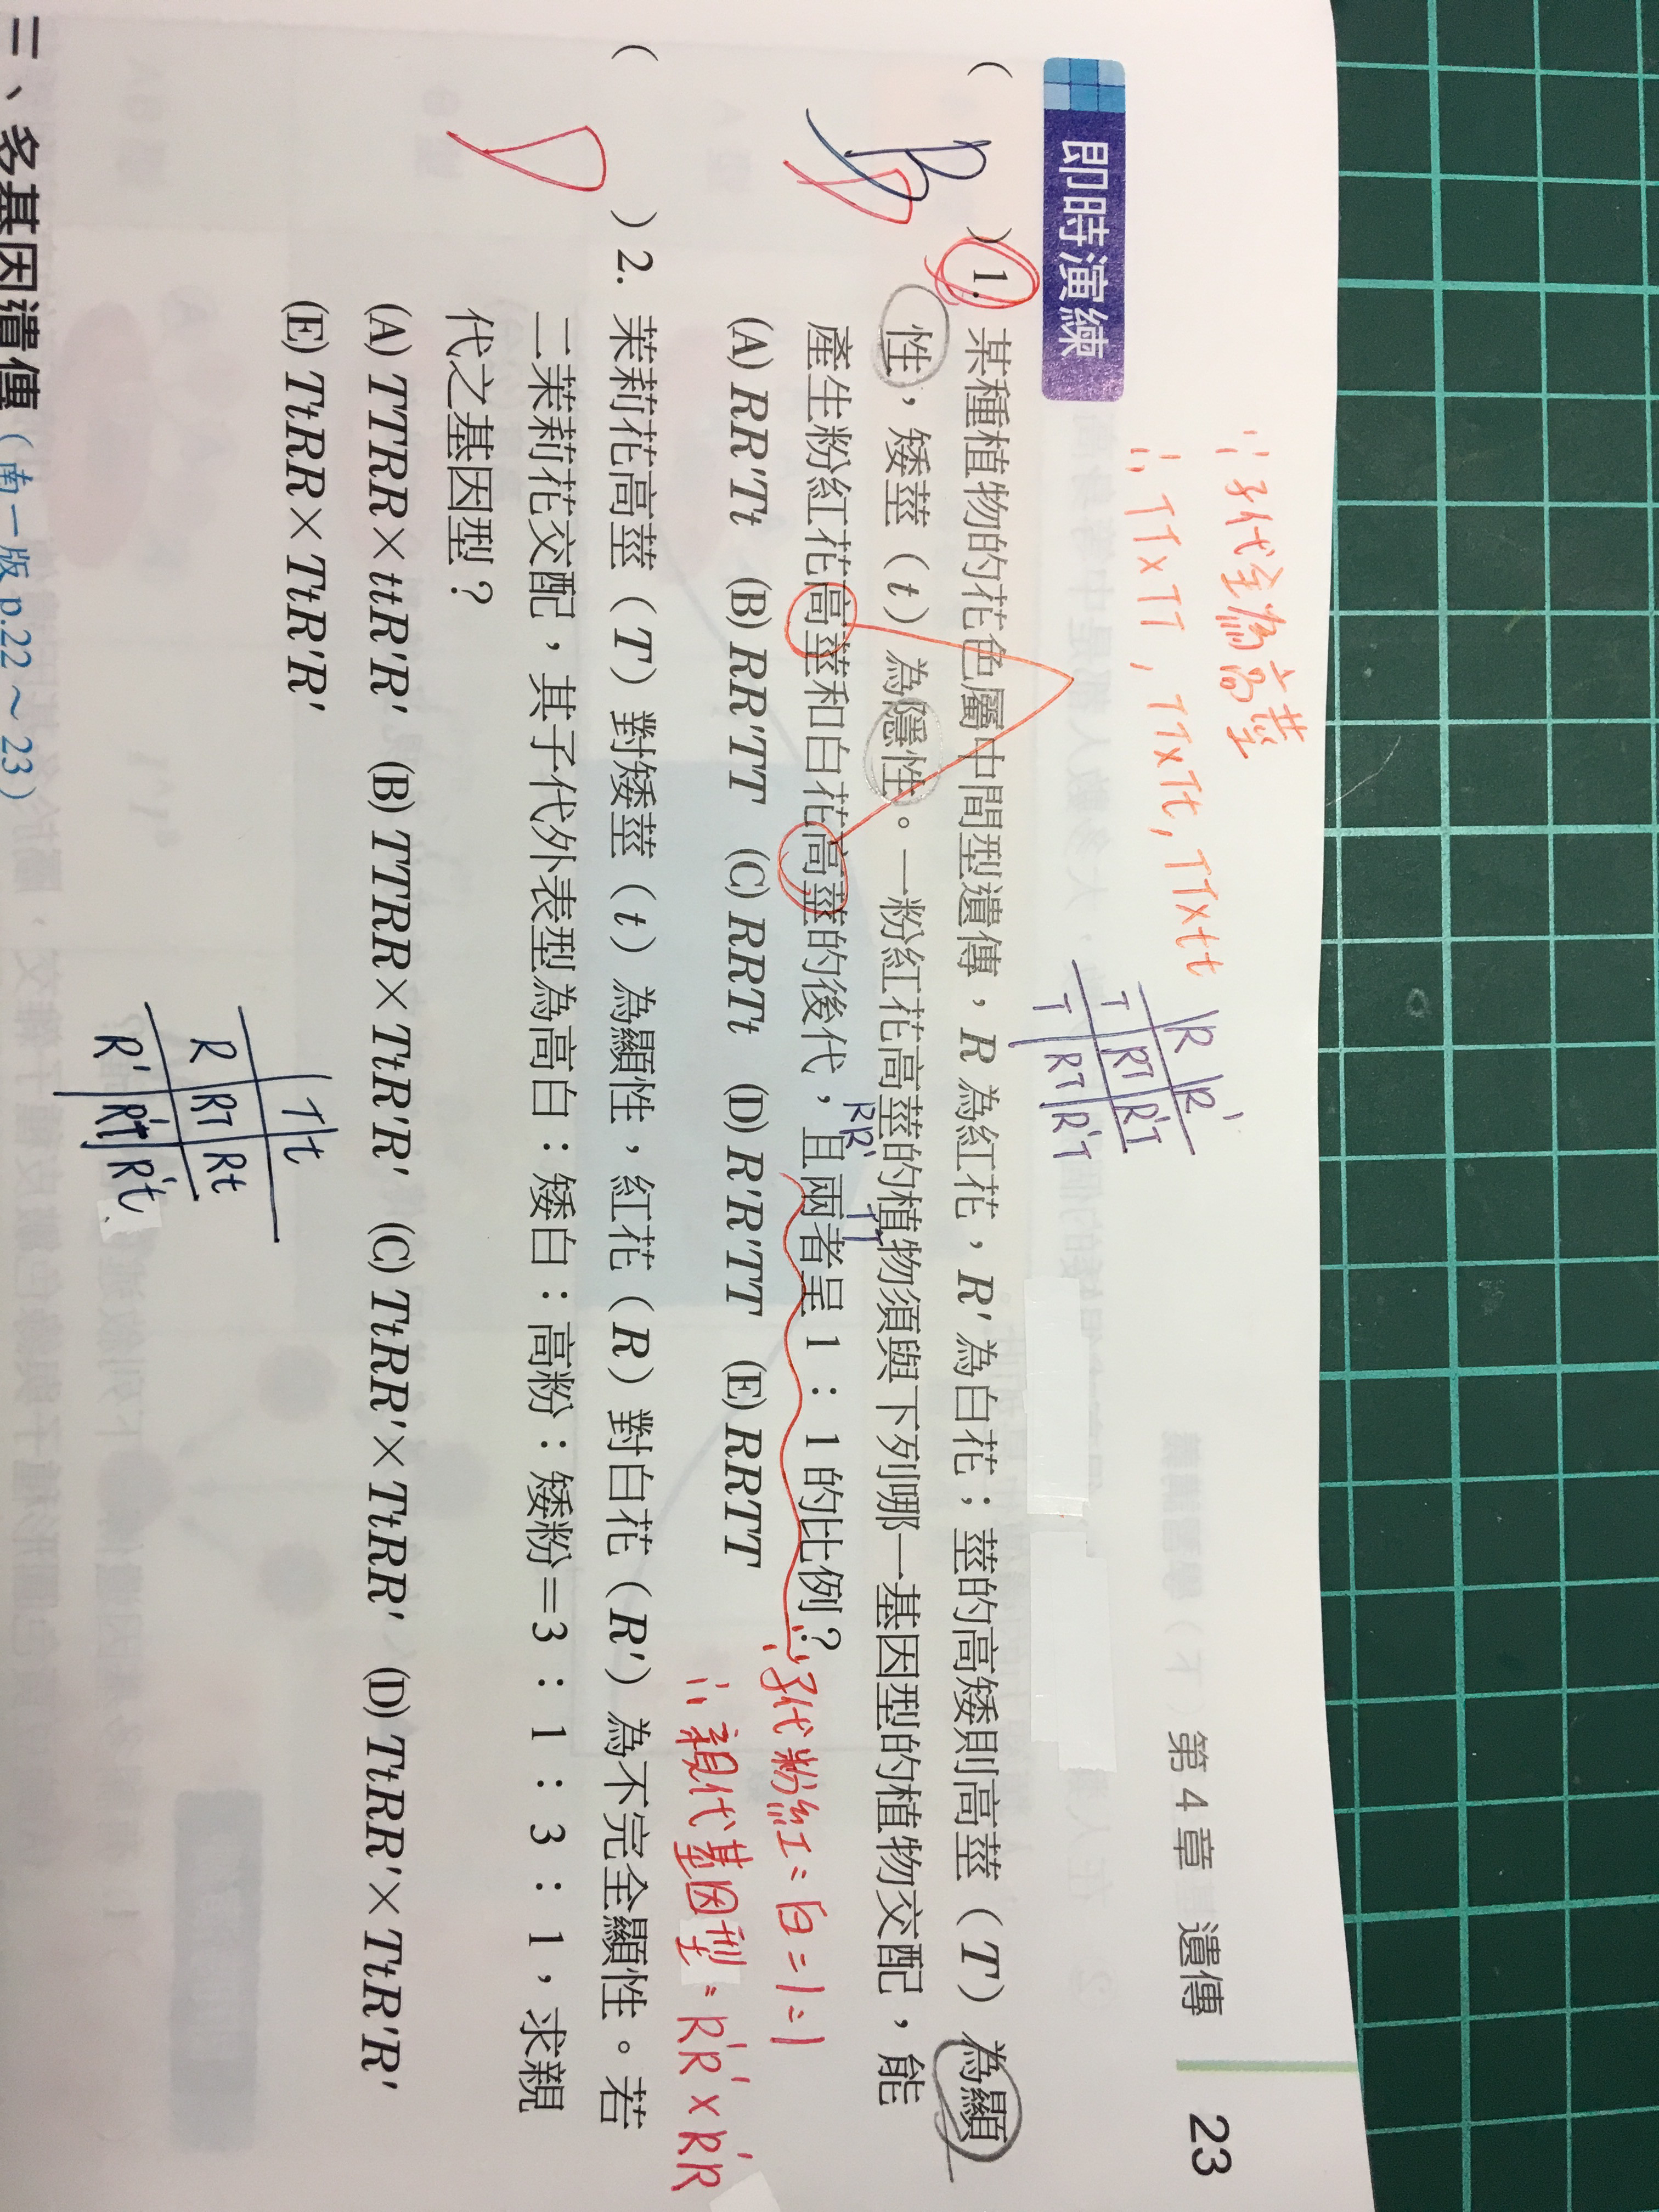 第 4 章 遺傳 23
∵子代全為高莖
∴ TT×TT, TT×Tt, TT×tt
R R'
T RT R'T
T RT R'T
即時演練
( B D ) 1. 某種植物的花色屬中間型遺傳，R 為紅花，R' 為白花；莖的高矮則高莖（T）為顯
性，矮莖（t）為隱性。一粉紅花高莖的植物須與下列哪一基因型的植物交配，能
RR' TT
產生粉紅花高莖和白花高莖的後代，且兩者呈 1：1 的比例？
(A) RR'Tt (B) RR'TT (C) RRTt (D) R'R'TT (E) RRTT
∵子代粉紅:白=1:1
∴親代基因型=R'R'×R'R
( D ) 2. 茉莉花高莖（T）對矮莖（t）為顯性，紅花（R）對白花（R'）為不完全顯性。若
二茉莉花交配，其子代外表型為高白：矮白：高粉：矮粉＝3：1：3：1，求親
代之基因型？
(A) TTRR×ttR'R' (B) TTRR×TtR'R' (C) TtRR'×TtRR' (D) TtRR'×TtR'R'
(E) TtRR×TtR'R'
T t
R RT Rt
R' R'T R't
三、多基因遺傳（南一版 p.22～23）